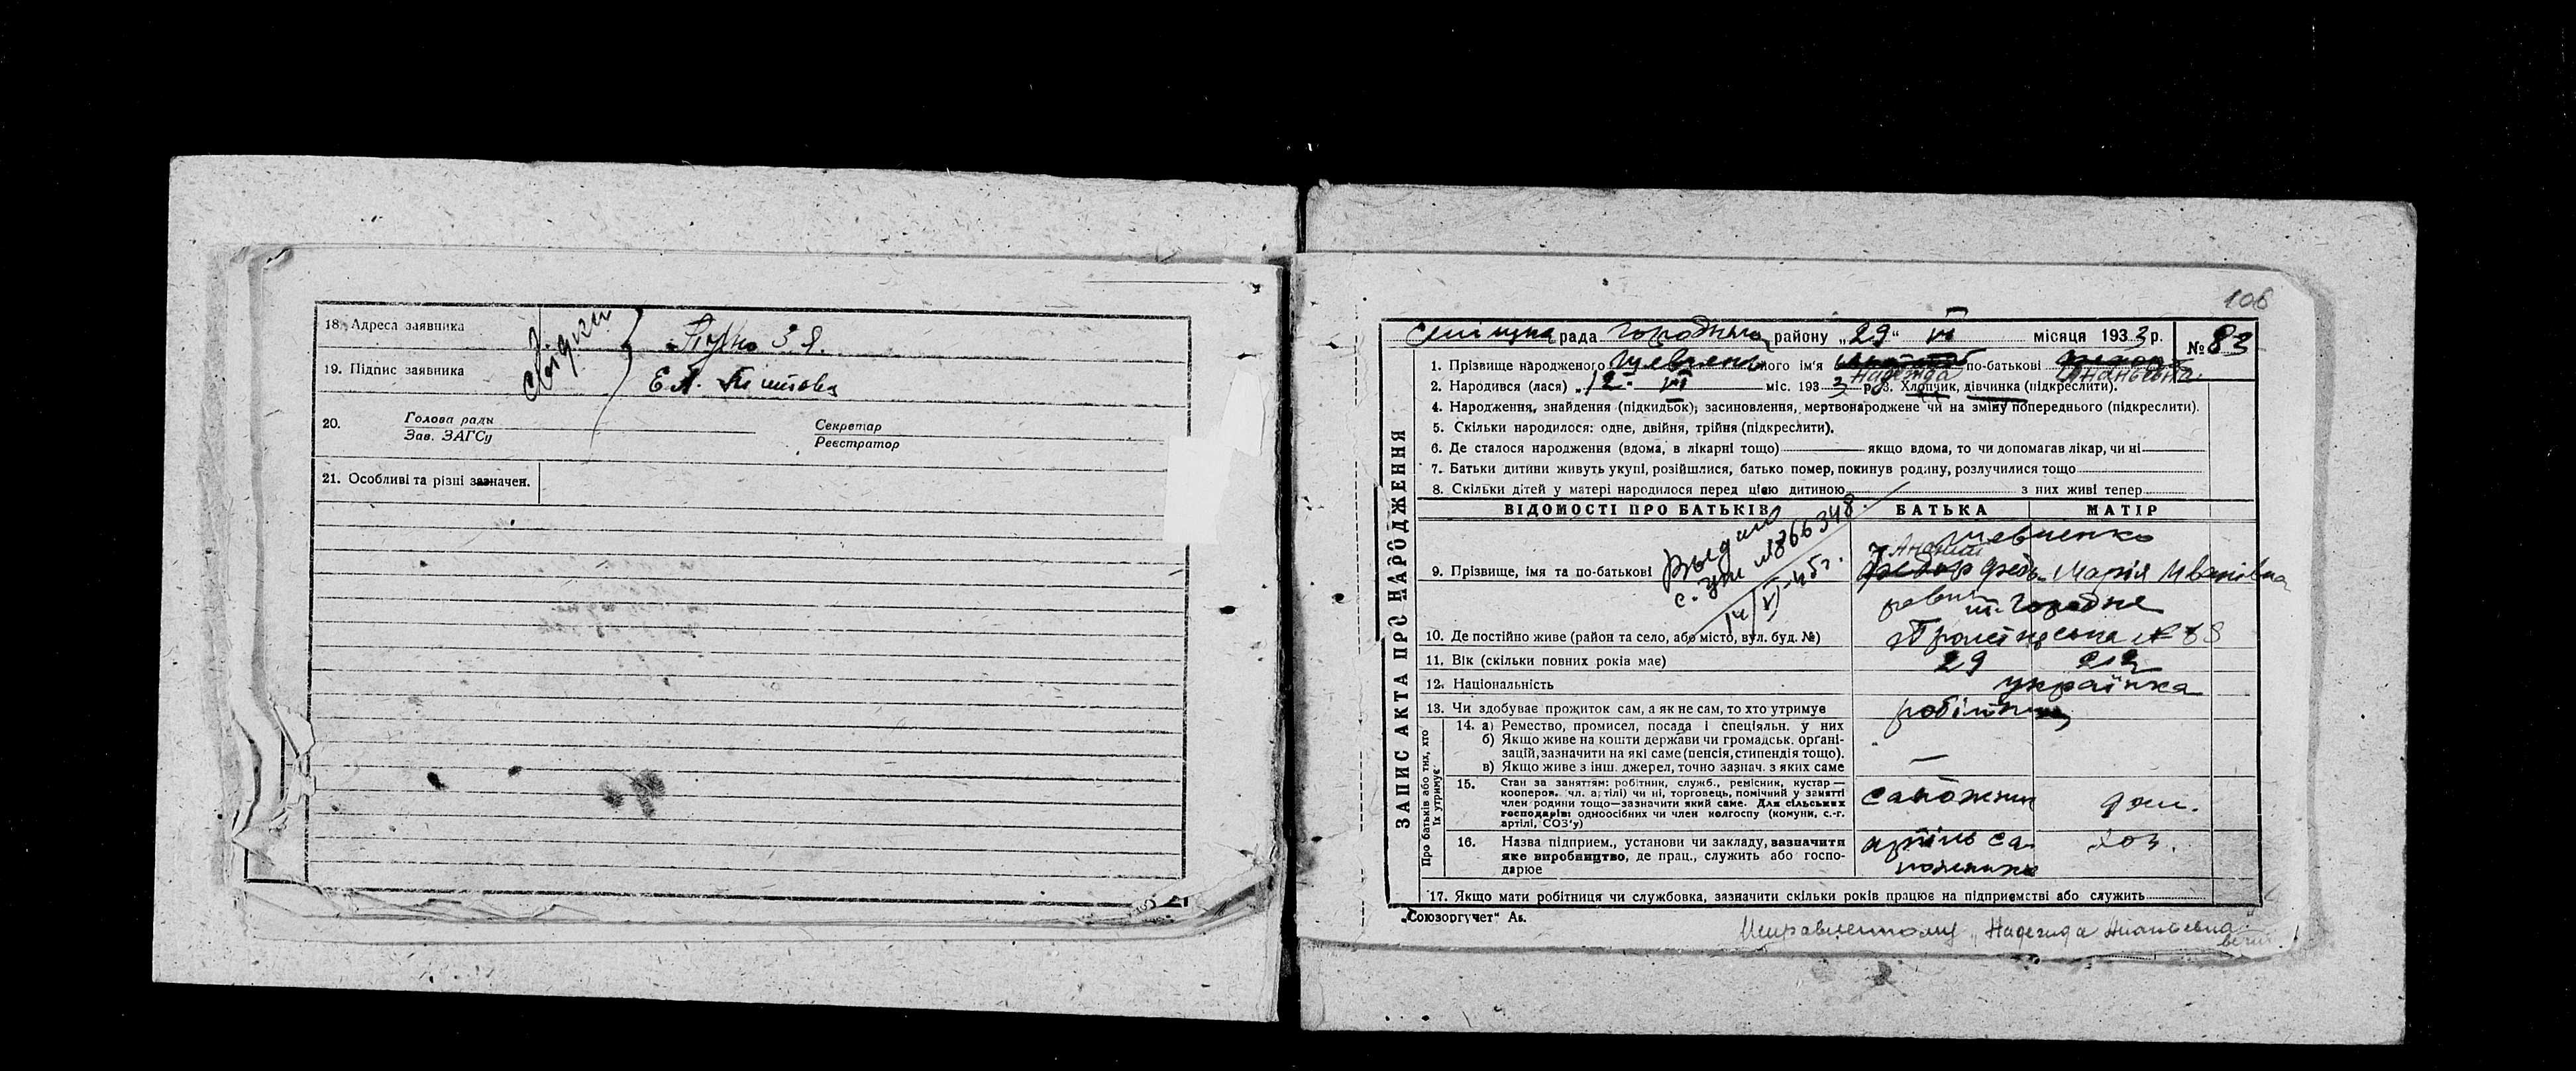 18. Адреса заявника
Свідки
Пузно З Я.
19. Підпис заявника
Е.А.
20. Голова ради
Зав. ЗАГСу
Секретар
Реєстратор
21. Особливі та різні зазначен.
106
рада района „29“ VI місяця 1933 р. № 83
ЗАПИС АКТА ПРО НАРОДЖЕННЯ
1. Прізвище народженого Шевченко його ім'я Надежда по-батькові Ананьевна
2. Народився (лася) „12“ VI міс. 1933 р. 3. Хлопчик, дівчинка (підкреслити).
4. Народження, знайдення (підкидьок); засиновлення, мертвонароджене чи на зміну попереднього (підкреслити).
5. Скільки народилося: одне, двійня, трійня (підкреслити).
6. Де сталося народження (вдома, в лікарні тощо) якщо вдома, то чи допомагав лікар, чи ні
7. Батьки дитини живуть укупі, розійшлися, батько помер, покинув родину, розлучилися тощо
8. Скільки дітей у матері народилося перед цією дитиною з них живі тепер
ВІДОМОСТІ ПРО БАТЬКІВ БАТЬКА МАТІР
Шевченко
Ананий
9. Прізвище, імя та по-батькові Федор Марія Ивановна
Выдано
с. № 866348
14/VI-45г.
м. Городне
10. Де постійно живе (район та село, або місто, вул. буд. №)
11. Вік (скільки повних років має) 29 22
12. Національність українка
13. Чи здобуває прожиток сам, а як не сам, то хто утримує робітник
Про батьків або тих, хто їх утримує
14. а) Ремество, промисел, посада і спеціяльн. у них
б) Якщо живе на кошти держави чи громадськ. органі-
зацій, зазначити на які саме (пенсія, стипендія тощо).
в) Якщо живе з інш. джерел, точно зазнач. з яких саме —
15. Стан за заняттям: робітник, служб., ремісник, кустар—
кооперов. чл. артілі) чи ні, торговець, помічний у занятті
член родини тощо—зазначити який саме. Для сільських
господарів: одноосібних чи член колгоспу (комуни, с.-г.
артілі, СОЗ'у)
сапожник дом.
16. Назва підприєм., установи чи закладу, зазначити
яке виробництво, де прац., служить або госпо-
дарює
артіль са-
пожник
хоз.
17. Якщо мати робітниця чи службовка, зазначити скільки років працює на підприємстві або служить
„Союзоргучет“ Ав.
Исправленному „Надежда Ананьевна“
верить